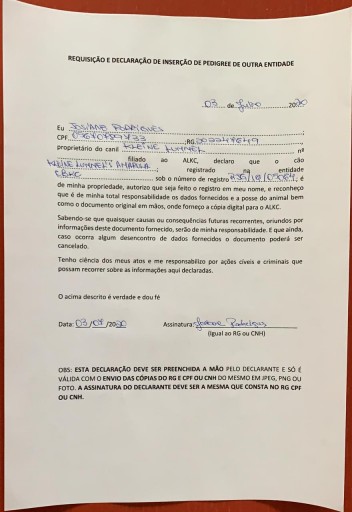 REQUISIÇÃO E DECLARAÇÃO DE INSERÇÃO DE PEDIGREE DE OUTRA ENTIDADE
03 de Julho 2020
Eu JOSIANE RODRIGUES
CPF. ;RG
proprietário do canil KLEINE HUMMEL nº
filiado ao ALKC, declaro que o cão
KLEINE HUMMEL'S registrado na entidade
CBKC sob o número de registro é
de minha propriedade, autorizo que seja feito o registro em meu nome, e reconheço
que é de minha total responsabilidade os dados fornecidos e a posse do animal bem
como o documento original em mãos, onde forneço a cópia digital para o ALKC.
Sabendo-se que quaisquer causas ou consequências futuras recorrentes, oriundos por
informações deste documento fornecido, serão de minha responsabilidade. E que ainda,
caso ocorra algum desencontro de dados fornecidos o documento poderá ser
cancelado.
Tenho ciência dos meus atos e me responsabilizo por ações cíveis e criminais que
possam recorrer sobre as informações aqui declaradas.
O acima descrito é verdade e dou fé
Data: 03/07/2020 Assinatura: Josiane Rodrigues
(Igual ao RG ou CNH)
OBS: ESTA DECLARAÇÃO DEVE SER PREENCHIDA A MÃO PELO DECLARANTE E SÓ É
VÁLIDA COM O ENVIO DAS CÓPIAS DO RG E CPF OU CNH DO MESMO EM JPEG, PNG OU
FOTO. A ASSINATURA DO DECLARANTE DEVE SER A MESMA QUE CONSTA NO RG CPF
OU CNH.